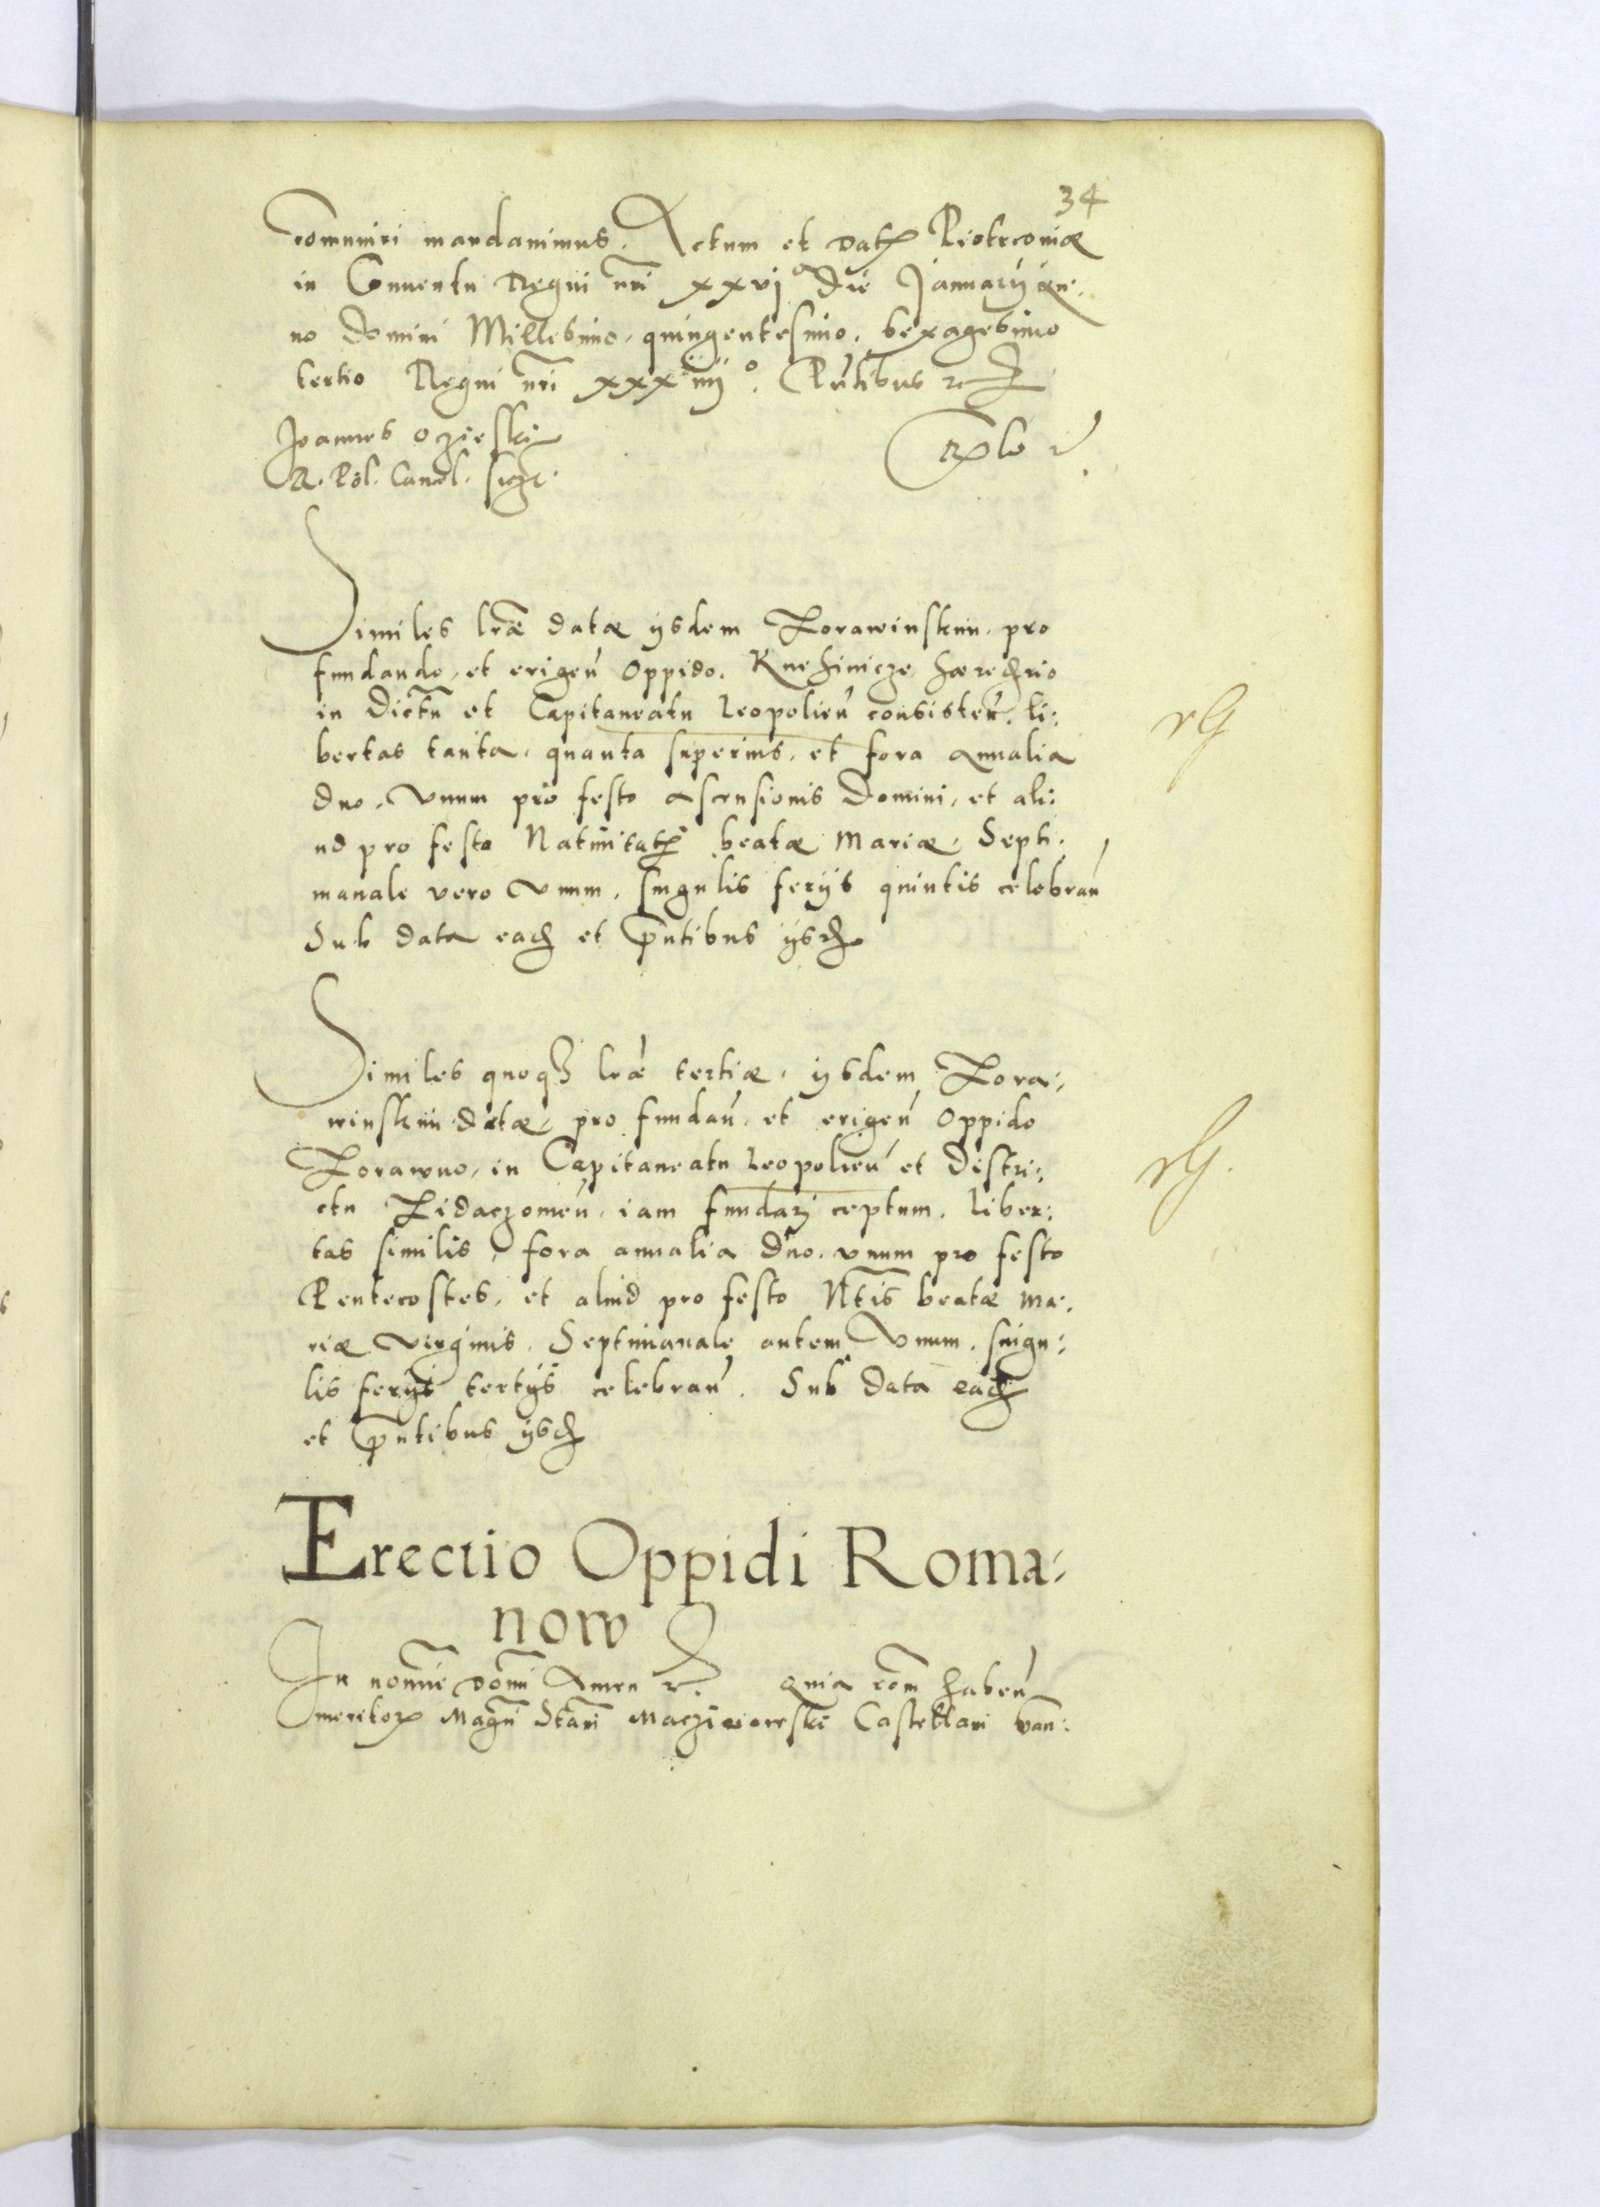 34
com̄uniri mandauimus. Actum et Datꝭ Piotrcouiæ
in Conuentu Regni nr̄i xxvj die Januarÿ an-
no Domini Millesimo, quingentesimo, sexagesimo
tertio Regni nr̄i xxxiiijº. Pn̄tibus
Joannes Oczieski
R. Pol. Cancel.
Similes lr̄æ datæ ÿsdem Zorawinskim, pro
fundando, et erigeń Oppido, Knehinicze hæredrio
in Dictū et Capitaneatu Leopolień consisteń. li:
bertas tanta, quanta superius, et fora annalia
duo, vnum pro festo Ascensionis Domini, et ali:
ud pro festo Natiuitatꝭ beatæ Mariæ. Septi-
manale vero vnum, singulis ferÿs quintis celebrań
Sub data eađ et pn̄tibus ÿsđ
Similes quoqꝫ lræ tertiæ, ÿsdem Zora:
winskim datæ, pro fundań et erigeń Oppido
Zorawno, in Capitaneatu Leopolień et Distri:
ctu Zidaczomeń, iam fundari ceptum. liber:
tas similis, fora annalia duo, vnum pro festo
Pentecostes, et aliud pro festo Nt̄is beatæ Ma-
riæ virginis. Septimanale autem vnum, singu:
lis ferÿs tertÿs celebrań. Sub data eađ
et pn̄tibus ÿsđ
Erectio Oppidi Roma:
now
In nomine Dom̄i Amen Quia rōm habeń
meritorꝭ Magn̄i Stan̄i Macziewski Castellani